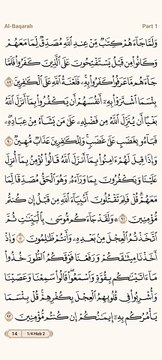 Al-Baqarah Part 1
وَلَمَّا جَآءَهُمْ كِتَٰبٌ مِّنْ عِندِ ٱللَّهِ مُصَدِّقٌ لِّمَا مَعَهُمْ
وَكَانُوا۟ مِن قَبْلُ يَسْتَفْتِحُونَ عَلَى ٱلَّذِينَ كَفَرُوا۟ فَلَمَّا
جَآءَهُم مَّا عَرَفُوا۟ كَفَرُوا۟ بِهِۦ فَلَعْنَةُ ٱللَّهِ عَلَى ٱلْكَٰفِرِينَ ٨٩
بِئْسَمَا ٱشْتَرَوْا۟ بِهِۦٓ أَنفُسَهُمْ أَن يَكْفُرُوا۟ بِمَآ أَنزَلَ ٱللَّهُ
بَغْيًا أَن يُنَزِّلَ ٱللَّهُ مِن فَضْلِهِۦ عَلَىٰ مَن يَشَآءُ مِنْ عِبَادِهِۦ
فَبَآءُو بِغَضَبٍ عَلَىٰ غَضَبٍ وَلِلْكَٰفِرِينَ عَذَابٌ مُّهِينٌ ٩٠
وَإِذَا قِيلَ لَهُمْ ءَامِنُوا۟ بِمَآ أَنزَلَ ٱللَّهُ قَالُوا۟ نُؤْمِنُ بِمَآ أُنزِلَ
عَلَيْنَا وَيَكْفُرُونَ بِمَا وَرَآءَهُۥ وَهُوَ ٱلْحَقُّ مُصَدِّقًا لِّمَا
مَعَهُمْ قُلْ فَلِمَ تَقْتُلُونَ أَنۢبِيَآءَ ٱللَّهِ مِن قَبْلُ إِن كُنتُم
مُّؤْمِنِينَ ٩١ وَلَقَدْ جَآءَكُم مُّوسَىٰ بِٱلْبَيِّنَٰتِ ثُمَّ
ٱتَّخَذْتُمُ ٱلْعِجْلَ مِنۢ بَعْدِهِۦ وَأَنتُمْ ظَٰلِمُونَ ٩٢ وَإِذْ
أَخَذْنَا مِيثَٰقَكُمْ وَرَفَعْنَا فَوْقَكُمُ ٱلطُّورَ خُذُوا۟
مَآ ءَاتَيْنَٰكُم بِقُوَّةٍ وَٱسْمَعُوا۟ قَالُوا۟ سَمِعْنَا وَعَصَيْنَا
وَأُشْرِبُوا۟ فِى قُلُوبِهِمُ ٱلْعِجْلَ بِكُفْرِهِمْ قُلْ بِئْسَمَا
يَأْمُرُكُم بِهِۦٓ إِيمَٰنُكُمْ إِن كُنتُم مُّؤْمِنِينَ ٩٣
14 1/4 Hizb 2